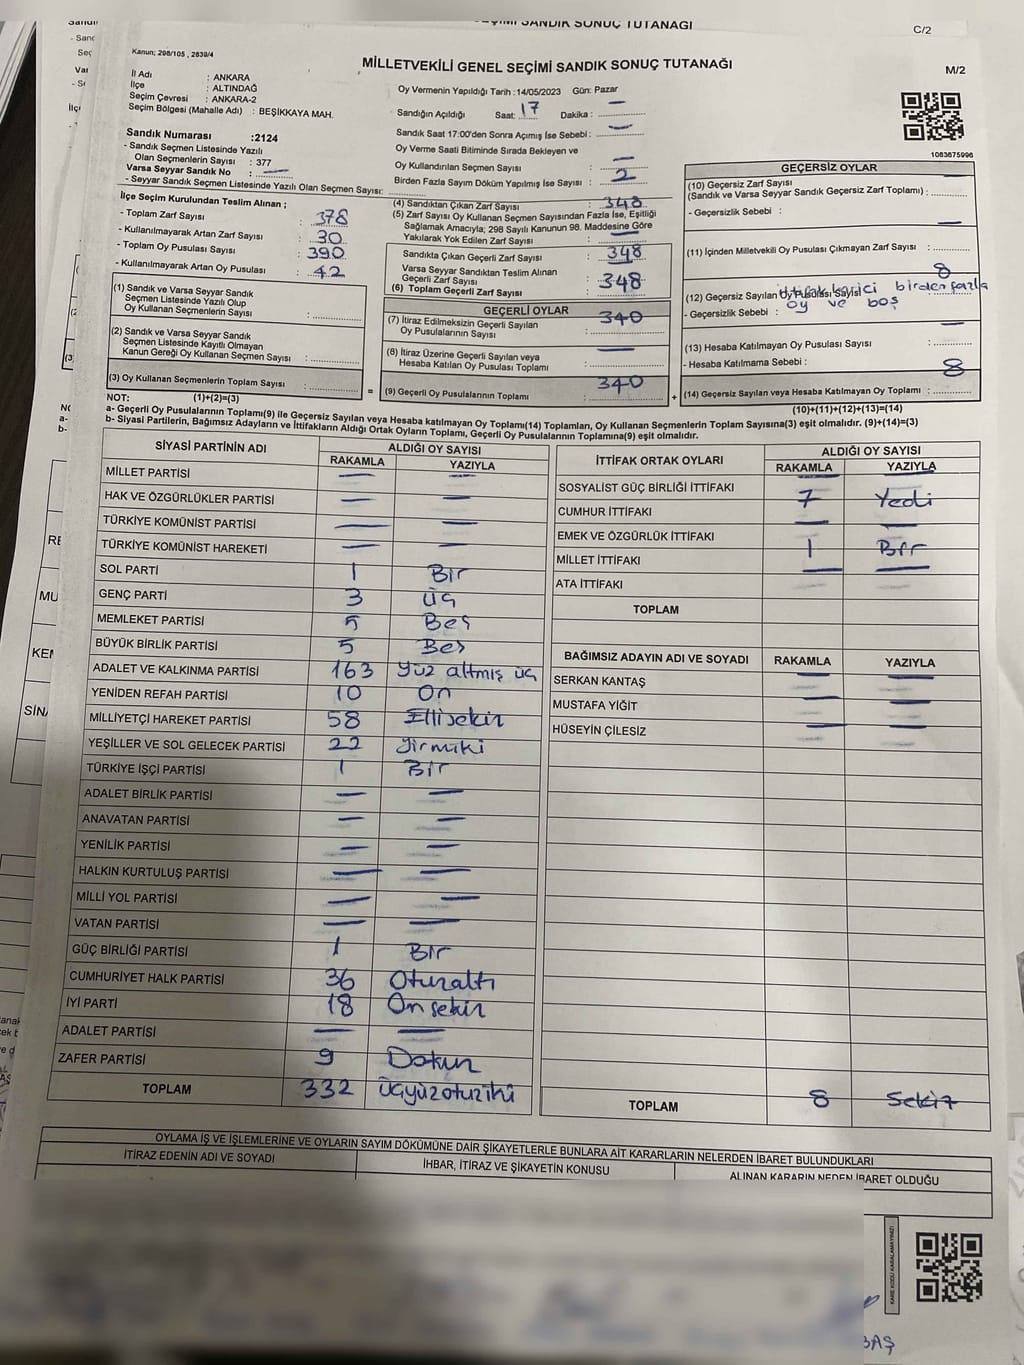 SANDIK SONUÇ TUTANAĞI
C/2
Kanun; 298/105 , 2839/4
MİLLETVEKİLİ GENEL SEÇİMİ SANDIK SONUÇ TUTANAĞI
M/2
İl Adı : ANKARA
İlçe : ALTINDAĞ
Seçim Çevresi : ANKARA-2
Seçim Bölgesi (Mahalle Adı) : BEŞİKKAYA MAH.
Sandık Numarası :2124
- Sandık Seçmen Listesinde Yazılı
Olan Seçmenlerin Sayısı : 377
Varsa Seyyar Sandık No : —
- Seyyar Sandık Seçmen Listesinde Yazılı Olan Seçmen Sayısı:
Oy Vermenin Yapıldığı Tarih :14/05/2023 Gün: Pazar
Sandığın Açıldığı Saat: 17 Dakika: —
Sandık Saat 17:00'den Sonra Açımış İse Sebebi : —
Oy Verme Saati Bitiminde Sırada Bekleyen ve
Oy Kullandırılan Seçmen Sayısı : —
Birden Fazla Sayım Döküm Yapılmış İse Sayısı : 2
1083675996
İlçe Seçim Kurulundan Teslim Alınan ;
- Toplam Zarf Sayısı : 378
- Kullanılmayarak Artan Zarf Sayısı : 30
- Toplam Oy Pusulası Sayısı : 390
- Kullanılmayarak Artan Oy Pusulası : 42
(1) Sandık ve Varsa Seyyar Sandık
Seçmen Listesinde Yazılı Olup
Oy Kullanan Seçmenlerin Sayısı :
(2) Sandık ve Varsa Seyyar Sandık
Seçmen Listesinde Kayıtlı Olmayan
Kanun Gereği Oy Kullanan Seçmen Sayısı :
(3) Oy Kullanan Seçmenlerin Toplam Sayısı :
(4) Sandıktan Çıkan Zarf Sayısı : 348
(5) Zarf Sayısı Oy Kullanan Seçmen Sayısından Fazla İse, Eşitliği
Sağlamak Amacıyla; 298 Sayılı Kanunun 98. Maddesine Göre
Yakılarak Yok Edilen Zarf Sayısı : —
Sandıkta Çıkan Geçerli Zarf Sayısı : 348
Varsa Seyyar Sandıktan Teslim Alınan
Geçerli Zarf Sayısı
(6) Toplam Geçerli Zarf Sayısı : 348
GEÇERLİ OYLAR
(7) İtiraz Edilmeksizin Geçerli Sayılan
Oy Pusulalarının Sayısı : 340
(8) İtiraz Üzerine Geçerli Sayılan veya
Hesaba Katılan Oy Pusulası Toplamı : —
= (9) Geçerli Oy Pusulalarının Toplamı : 340
GEÇERSİZ OYLAR
(10) Geçersiz Zarf Sayısı
(Sandık ve Varsa Seyyar Sandık Geçersiz Zarf Toplamı) : —
- Geçersizlik Sebebi :
(11) İçinden Milletvekili Oy Pusulası Çıkmayan Zarf Sayısı : —
(12) Geçersiz Sayılan Oy Pusulası Sayısı : 8
- Geçersizlik Sebebi : ittifak harici birden fazla
oy ve boş
(13) Hesaba Katılmayan Oy Pusulası Sayısı : —
- Hesaba Katılmama Sebebi :
+ (14) Geçersiz Sayılan veya Hesaba Katılmayan Oy Toplamı : 8
NOT: (1)+(2)=(3)
(10)+(11)+(12)+(13)=(14)
a- Geçerli Oy Pusulalarının Toplamı(9) ile Geçersiz Sayılan veya Hesaba katılmayan Oy Toplamı(14) Toplamları, Oy Kullanan Seçmenlerin Toplam Sayısına(3) eşit olmalıdır. (9)+(14)=(3)
b- Siyasi Partilerin, Bağımsız Adayların ve İttifakların Aldığı Ortak Oyların Toplamı, Geçerli Oy Pusulalarının Toplamına(9) eşit olmalıdır.
SİYASİ PARTİNİN ADI ALDIĞI OY SAYISI
RAKAMLA YAZIYLA
MİLLET PARTİSİ — —
HAK VE ÖZGÜRLÜKLER PARTİSİ — —
TÜRKİYE KOMÜNİST PARTİSİ — —
TÜRKİYE KOMÜNİST HAREKETİ — —
SOL PARTİ 1 Bir
GENÇ PARTİ 3 üç
MEMLEKET PARTİSİ 5 Beş
BÜYÜK BİRLİK PARTİSİ 5 Beş
ADALET VE KALKINMA PARTİSİ 163 yüz altmış üç
YENİDEN REFAH PARTİSİ 10 On
MİLLİYETÇİ HAREKET PARTİSİ 58 Ellisekiz
YEŞİLLER VE SOL GELECEK PARTİSİ 22 yirmiiki
TÜRKİYE İŞÇİ PARTİSİ 1 Bir
ADALET BİRLİK PARTİSİ — —
ANAVATAN PARTİSİ — —
YENİLİK PARTİSİ — —
HALKIN KURTULUŞ PARTİSİ — —
MİLLİ YOL PARTİSİ — —
VATAN PARTİSİ — —
GÜÇ BİRLİĞİ PARTİSİ 1 Bir
CUMHURİYET HALK PARTİSİ 36 Otuzaltı
İYİ PARTİ 18 Onsekiz
ADALET PARTİSİ — —
ZAFER PARTİSİ 9 Dokuz
TOPLAM 332 üçyüzotuziki
İTTİFAK ORTAK OYLARI ALDIĞI OY SAYISI
RAKAMLA YAZIYLA
SOSYALİST GÜÇ BİRLİĞİ İTTİFAKI — —
CUMHUR İTTİFAKI 7 Yedi
EMEK VE ÖZGÜRLÜK İTTİFAKI — —
MİLLET İTTİFAKI 1 Bir
ATA İTTİFAKI — —
TOPLAM
BAĞIMSIZ ADAYIN ADI VE SOYADI RAKAMLA YAZIYLA
SERKAN KANTAŞ — —
MUSTAFA YİĞİT — —
HÜSEYİN ÇİLESİZ — —
TOPLAM 8 Sekiz
OYLAMA İŞ VE İŞLEMLERİNE VE OYLARIN SAYIM DÖKÜMÜNE DAİR ŞİKAYETLERLE BUNLARA AİT KARARLARIN NELERDEN İBARET BULUNDUKLARI
İTİRAZ EDENİN ADI VE SOYADI İHBAR, İTİRAZ VE ŞİKAYETİN KONUSU ALINAN KARARIN NEDEN İBARET OLDUĞU
KARE KODU KARALAMAYINIZ!